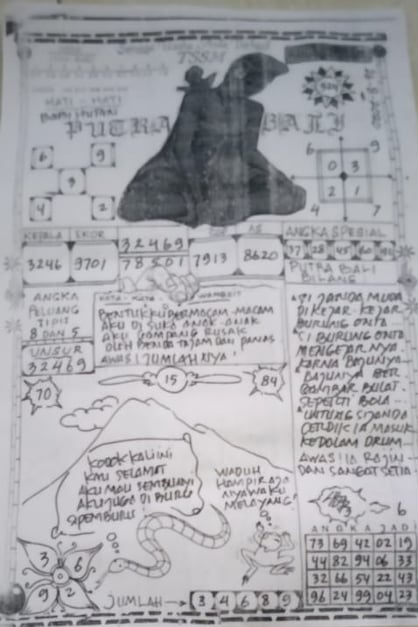 TSSM
HATI - HATI
PUTRA BALI
6 9
3
4 2
6 9
0 3
2 1
4 7
KEPALA EKOR
3246 9701
32469
78501
7913
AS
8620
ANGKA SPESIAL
37 28 45 80
PUTRA BALI
BILANG
ANGKA
PELUANG
TIPIS
8 DAN 5
UNSUR
32469
KATA - KATA
BENTUKKU BERMACAM-MACAM
AKU DI SUKA ANAK-ANAK
AKU GAMPANG RUSAK
OLEH BENDA TAJAM DAN PANAS
AWAS! JUMLAHNYA!
70
15
84
"SI JANDA MUDA
DI KEJAR-KEJAR
BURUNG ONTA
SI BURUNG ONTA
MENGEJARNYA
KARNA BAJUNYA
BAJUNYA BER
GAMBAR BULAT
SEPERTI BOLA
UNTUNG SI JANDA
MASUK
KEDALAM DRUM
AWAS! IA RAJIN
DAN SANGAT SETIA
KODOK KALI INI
KAU SELAMAT
AKU MAU SEMBUNYI
AKU JUGA DI BURU
SI PEMBURU
WADUH
HAMPIR AJA
NYAWAKU
MELAYANG!
3 6
9 2
JUMLAH → 3 4 6 8 9
6
ANGKA JADI
73 69 42 02 19
44 82 94 06 33
32 66 54 22 43
96 24 99 04 23